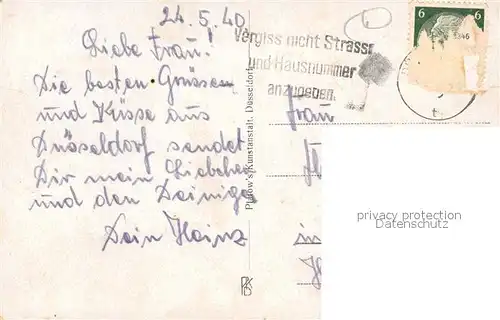 24.5.40
Liebe Frau!
Die besten Grüssen
und Küsse aus
Düsseldorf sendet
Dir mein Liebchen
und den Deinigen
Dein Heinz
Vergiss nicht Strasse
und Hausnummer
anzugeben.
6 6
Frau
in
Kunstanstalt, Düsseldorf
privacy protection
Datenschutz